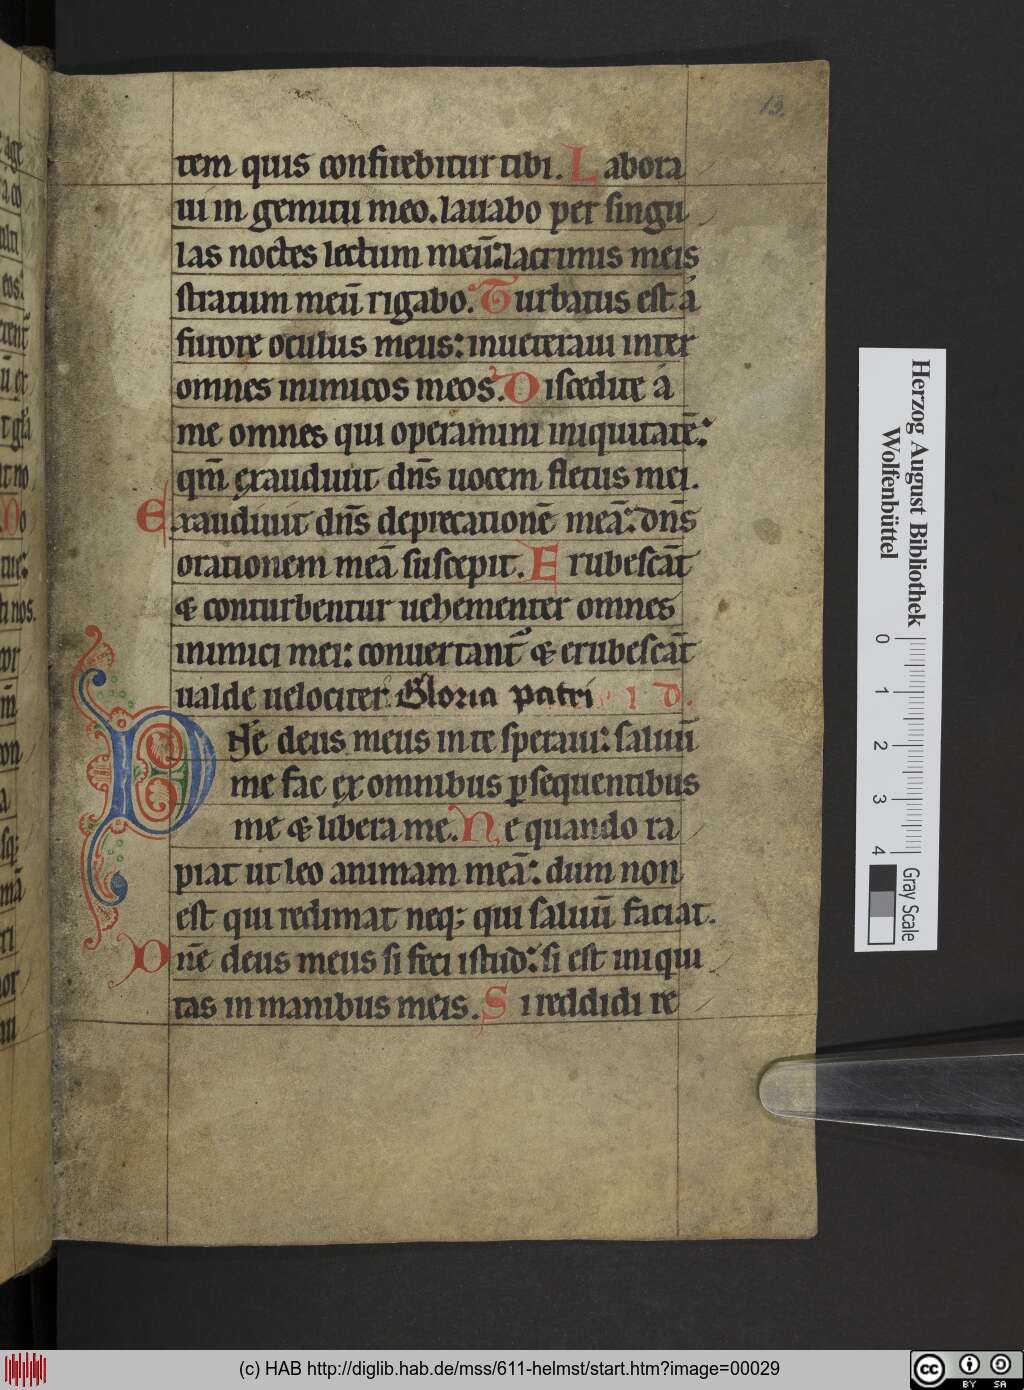 13.
tem quis confitebitur tibi. Labora
ui in gemitu meo. lauabo per singu
las noctes lectum meū: lacrimis meis
stratum meū rigabo. Turbatus est a
furore oculus meus: inueteraui inter
omnes inimicos meos. Discedite a
me omnes qui operamini iniquitatē:
qm̄ exaudiuit dn̄s uocem fletus mei.
Exaudiuit dn̄s deprecationē meā: dn̄s
orationem meā suscepit. Erubescāt
& conturbentur uehementer omnes
inimici mei: conuertant̄ & erubescāt
ualde uelociter. Gloria patri
Dn̄e deus meus in te speraui: saluū
me fac ex omnibus ꝑsequentibus
me & libera me. Ne quando ra
piat ut leo animam meā: dum non
est qui redimat neq; qui saluū faciat.
Dn̄e deus meus si feci istud: si est iniqui
tas in manibus meis. Si reddidi re
Herzog August Bibliothek
Wolfenbüttel
0 1 2 3 4
Gray Scale
(c) HAB http://diglib.hab.de/mss/611-helmst/start.htm?image=00029
cc BY SA